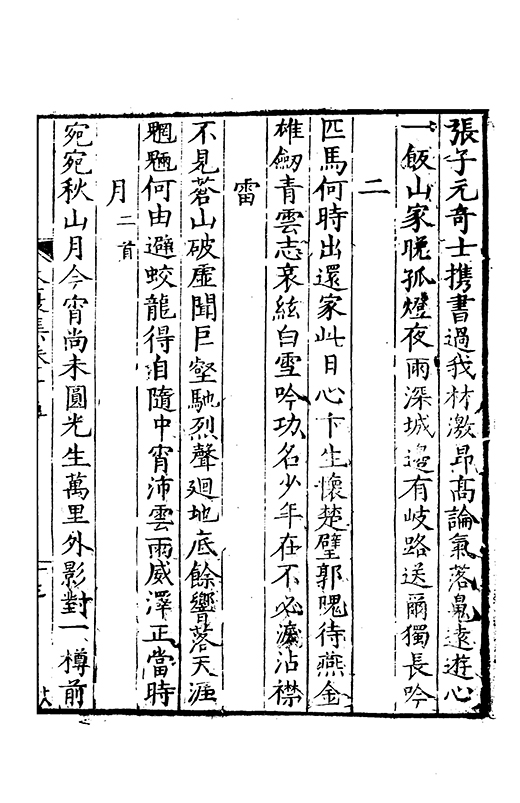 張子元奇士攜書過我材激昂高論氣落凫遠遊心
一飯山家晚孤燈夜雨深城邊有岐路送爾獨長吟
二
匹馬何時出還家此日心卞生懷楚璧郭隗待燕金
雄劒青雲志哀絃白雪吟功名少年在不必淚沾襟
雷
不見蒼山破虛聞巨壑馳烈聲廻地底餘響落天涯
魍魎何由避蛟龍得自隨中宵沛雲雨威澤正當時
月二首
宛宛秋山月今宵尚未圓光生萬里外影對一樽前